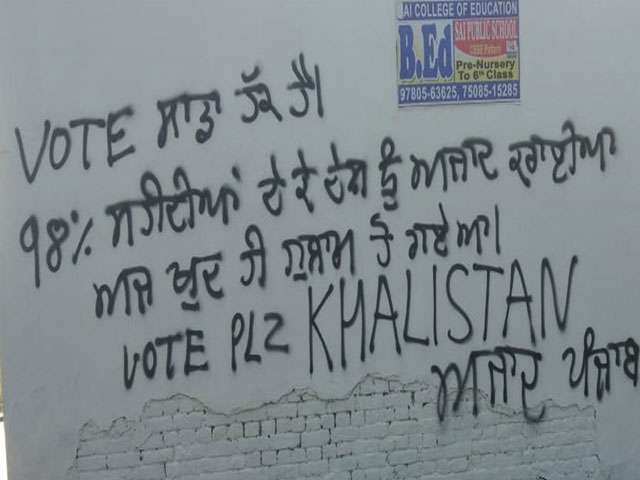 SAI COLLEGE OF EDUCATION
B.Ed
SAI PUBLIC SCHOOL
Pre-Nursery
To 6th Class
97805-63625, 75085-15285
VOTE ਸਾਡਾ ਹੱਕ ਹੈ।
98% ਸ਼ਹੀਦੀਆਂ ਦੇ ਕੇ ਦੇਸ਼ ਨੂੰ ਅਜ਼ਾਦ ਕਰਾਈਆ
ਅਜ ਖੁਦ ਹੀ ਗੁਲਾਮ ਹੋ ਗਏ ਆ।
VOTE PLZ KHALISTAN
ਅਜ਼ਾਦ ਪੰਜਾਬ